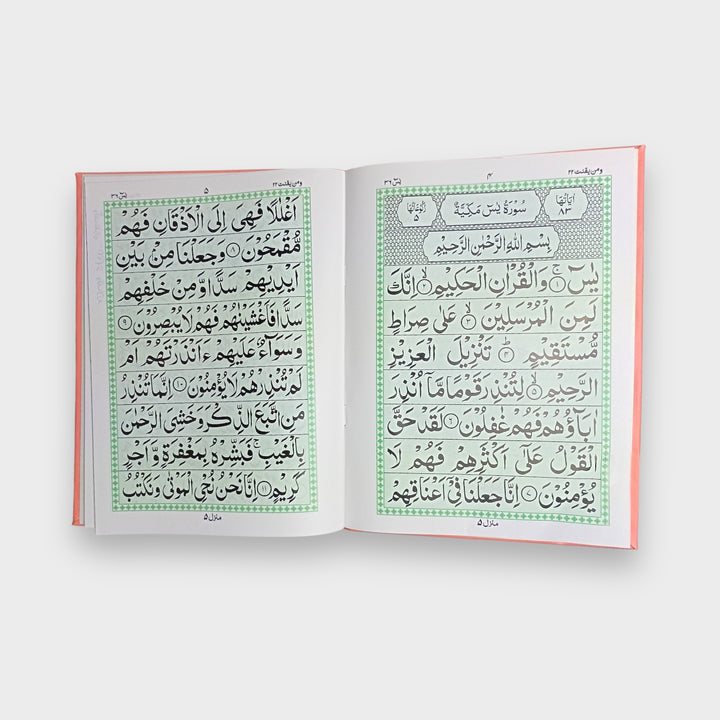 یٰسٓ ٣٦
٤
ومن یقنت ٢٢
اٰیَاتُهَا ٨٣
سُوْرَةُ یٰسٓ مَكِّیَّةٌ
رُكُوْعَاتُهَا ٥
بِسْمِ اللّٰهِ الرَّحْمٰنِ الرَّحِیْمِ
یٰسٓ ۚ﴿١﴾ وَالْقُرْاٰنِ الْحَكِیْمِ ۙ﴿٢﴾ اِنَّكَ
لَمِنَ الْمُرْسَلِیْنَ ۙ﴿٣﴾ عَلٰی صِرَاطٍ
مُّسْتَقِیْمٍ ؕ﴿٤﴾ تَنْزِیْلَ الْعَزِیْزِ
الرَّحِیْمِ ۙ﴿٥﴾ لِتُنْذِرَ قَوْمًا مَّاۤ اُنْذِرَ
اٰبَآؤُهُمْ فَهُمْ غٰفِلُوْنَ ﴿٦﴾ لَقَدْ حَقَّ
الْقَوْلُ عَلٰۤی اَكْثَرِهِمْ فَهُمْ لَا
یُؤْمِنُوْنَ ﴿٧﴾ اِنَّا جَعَلْنَا فِیْۤ اَعْنَاقِهِمْ
منازل ٥
یٰسٓ ٣٦
٥
ومن یقنت ٢٢
اَغْلٰلًا فَهِیَ اِلَی الْاَذْقَانِ فَهُمْ
مُّقْمَحُوْنَ ﴿٨﴾ وَجَعَلْنَا مِنْۢ بَیْنِ
اَیْدِیْهِمْ سَدًّا وَّمِنْ خَلْفِهِمْ
سَدًّا فَاَغْشَیْنٰهُمْ فَهُمْ لَا یُبْصِرُوْنَ ﴿٩﴾
وَسَوَآءٌ عَلَیْهِمْ ءَاَنْذَرْتَهُمْ اَمْ
لَمْ تُنْذِرْهُمْ لَا یُؤْمِنُوْنَ ﴿١٠﴾ اِنَّمَا تُنْذِرُ
مَنِ اتَّبَعَ الذِّكْرَ وَخَشِیَ الرَّحْمٰنَ
بِالْغَیْبِ ۚ فَبَشِّرْهُ بِمَغْفِرَةٍ وَّاَجْرٍ
كَرِیْمٍ ﴿١١﴾ اِنَّا نَحْنُ نُحْیِ الْمَوْتٰی وَنَكْتُبُ
منازل ٥